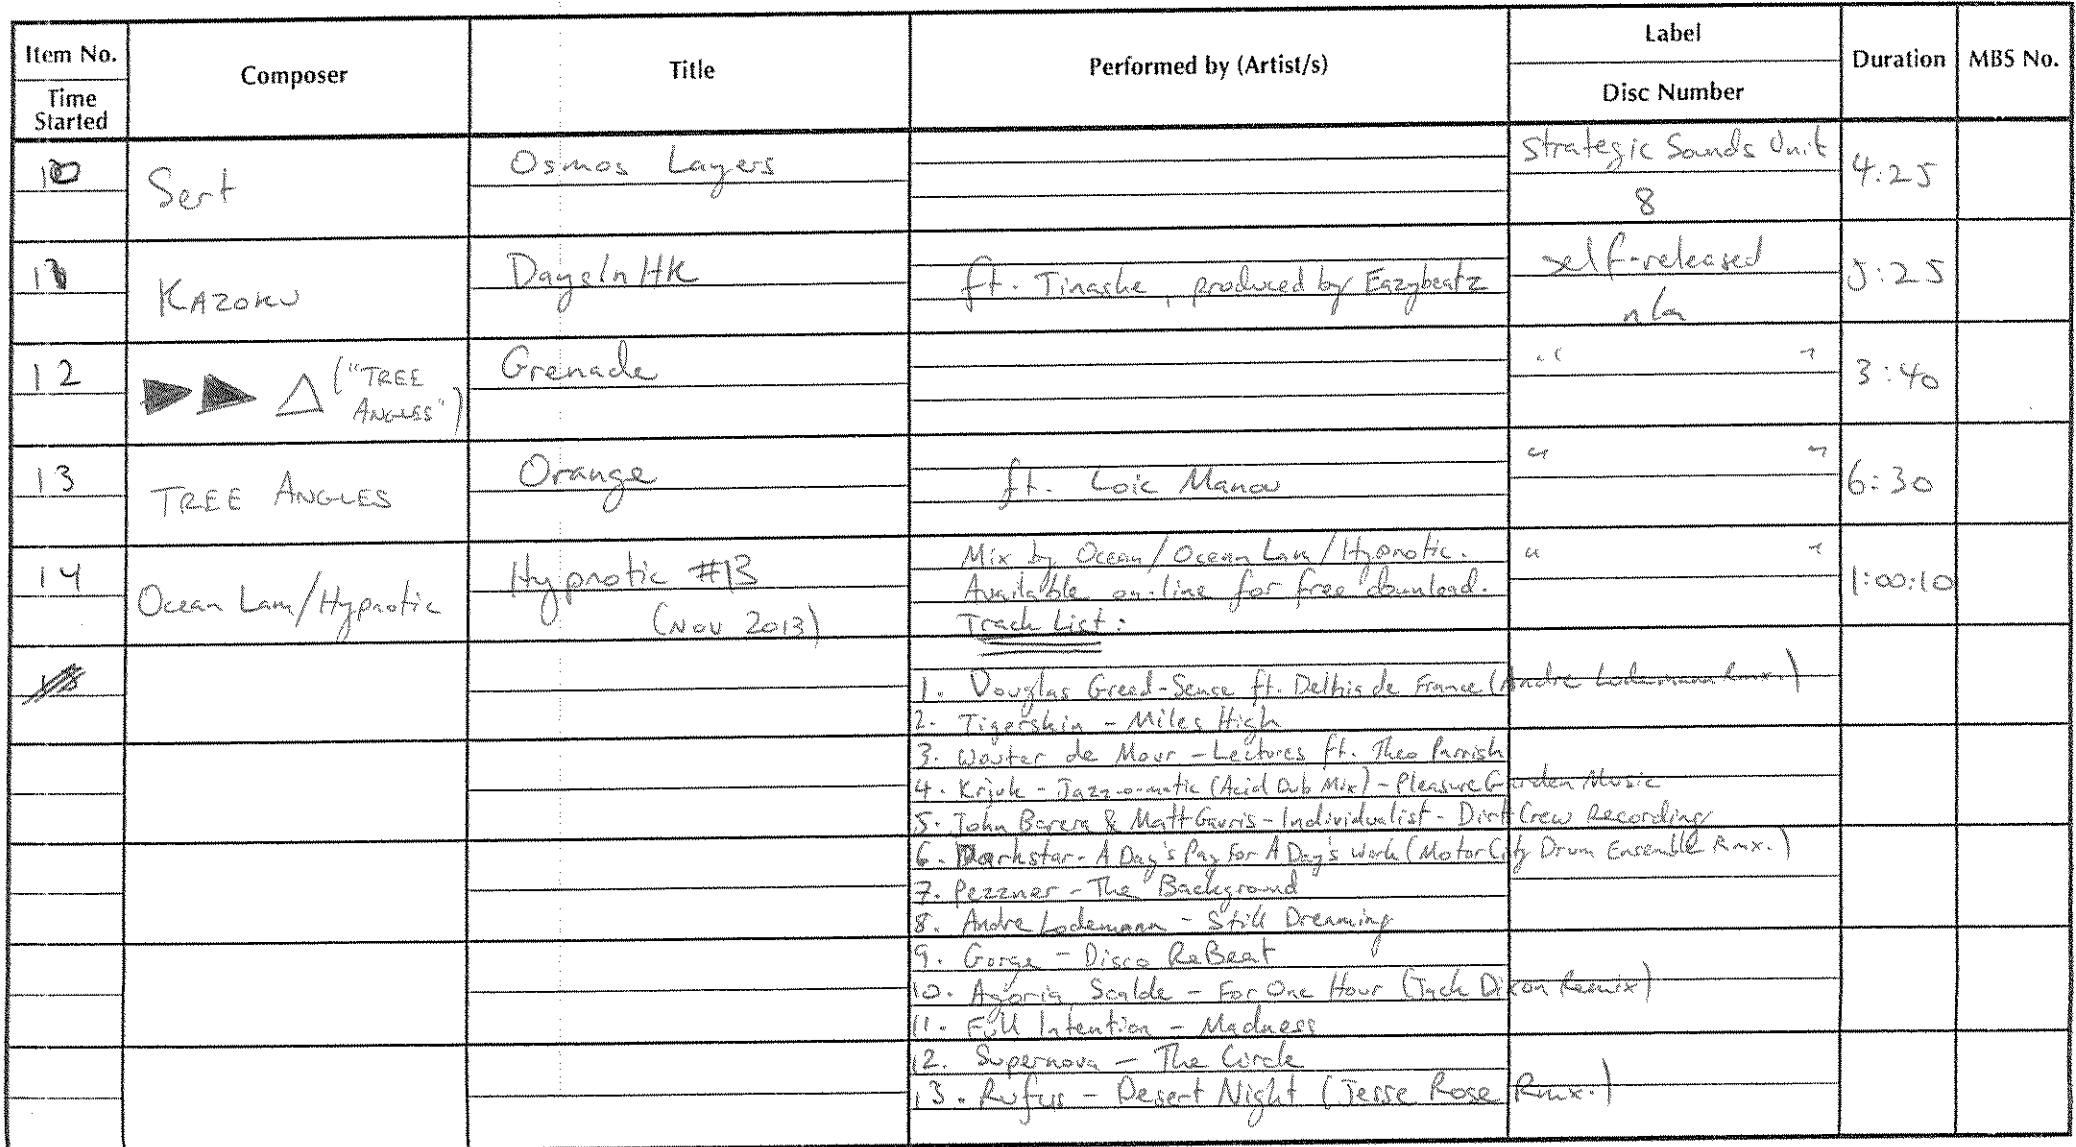 Item No.
Time Started
Composer
Title
Performed by (Artist/s)
Label
Disc Number
Duration
MBS No.
10
Sert
Osmos Layers
Strategic Sounds Unit
8
4:25
11
KAZOKU
DaysInHK
ft. Tinashe, produced by Eazybeatz
self-released
n/a
5:25
12
("TREE ANGLES")
Grenade
" "
3:40
13
TREE ANGLES
Orange
ft. Loic Manou
" "
6:30
14
Ocean Lam/Hypnotic
Hypnotic #13
(NOV 2013)
Mix by Ocean/Ocean Lam/Hypnotic.
Available on-line for free download.
Track List:
" "
1:00:10
1. Douglas Greed-Sense ft. Delhia de France (Andre Lodemann Rmx.)
2. Tigerskin - Miles High
3. Wouter de Mour - Lectures ft. Theo Parrish
4. Krjuk - Jazz-o-matic (Acid Dub Mix) - Pleasure Garden Music
5. John Barera & Matt Gavris - Individualist - Dirt Crew Recording
6. Darkstar - A Day's Pay For A Day's Work (Motor City Drum Ensemble Rmx.)
7. Pezzner - The Background
8. Andre Lodemann - Still Dreaming
9. Gorge - Disco ReBeat
10. Agoria, Scalde - For One Hour (Jack Dixon Remix)
11. Full Intention - Madness
12. Supernova - The Circle
13. Rufus - Desert Night (Jesse Rose Rmx.)